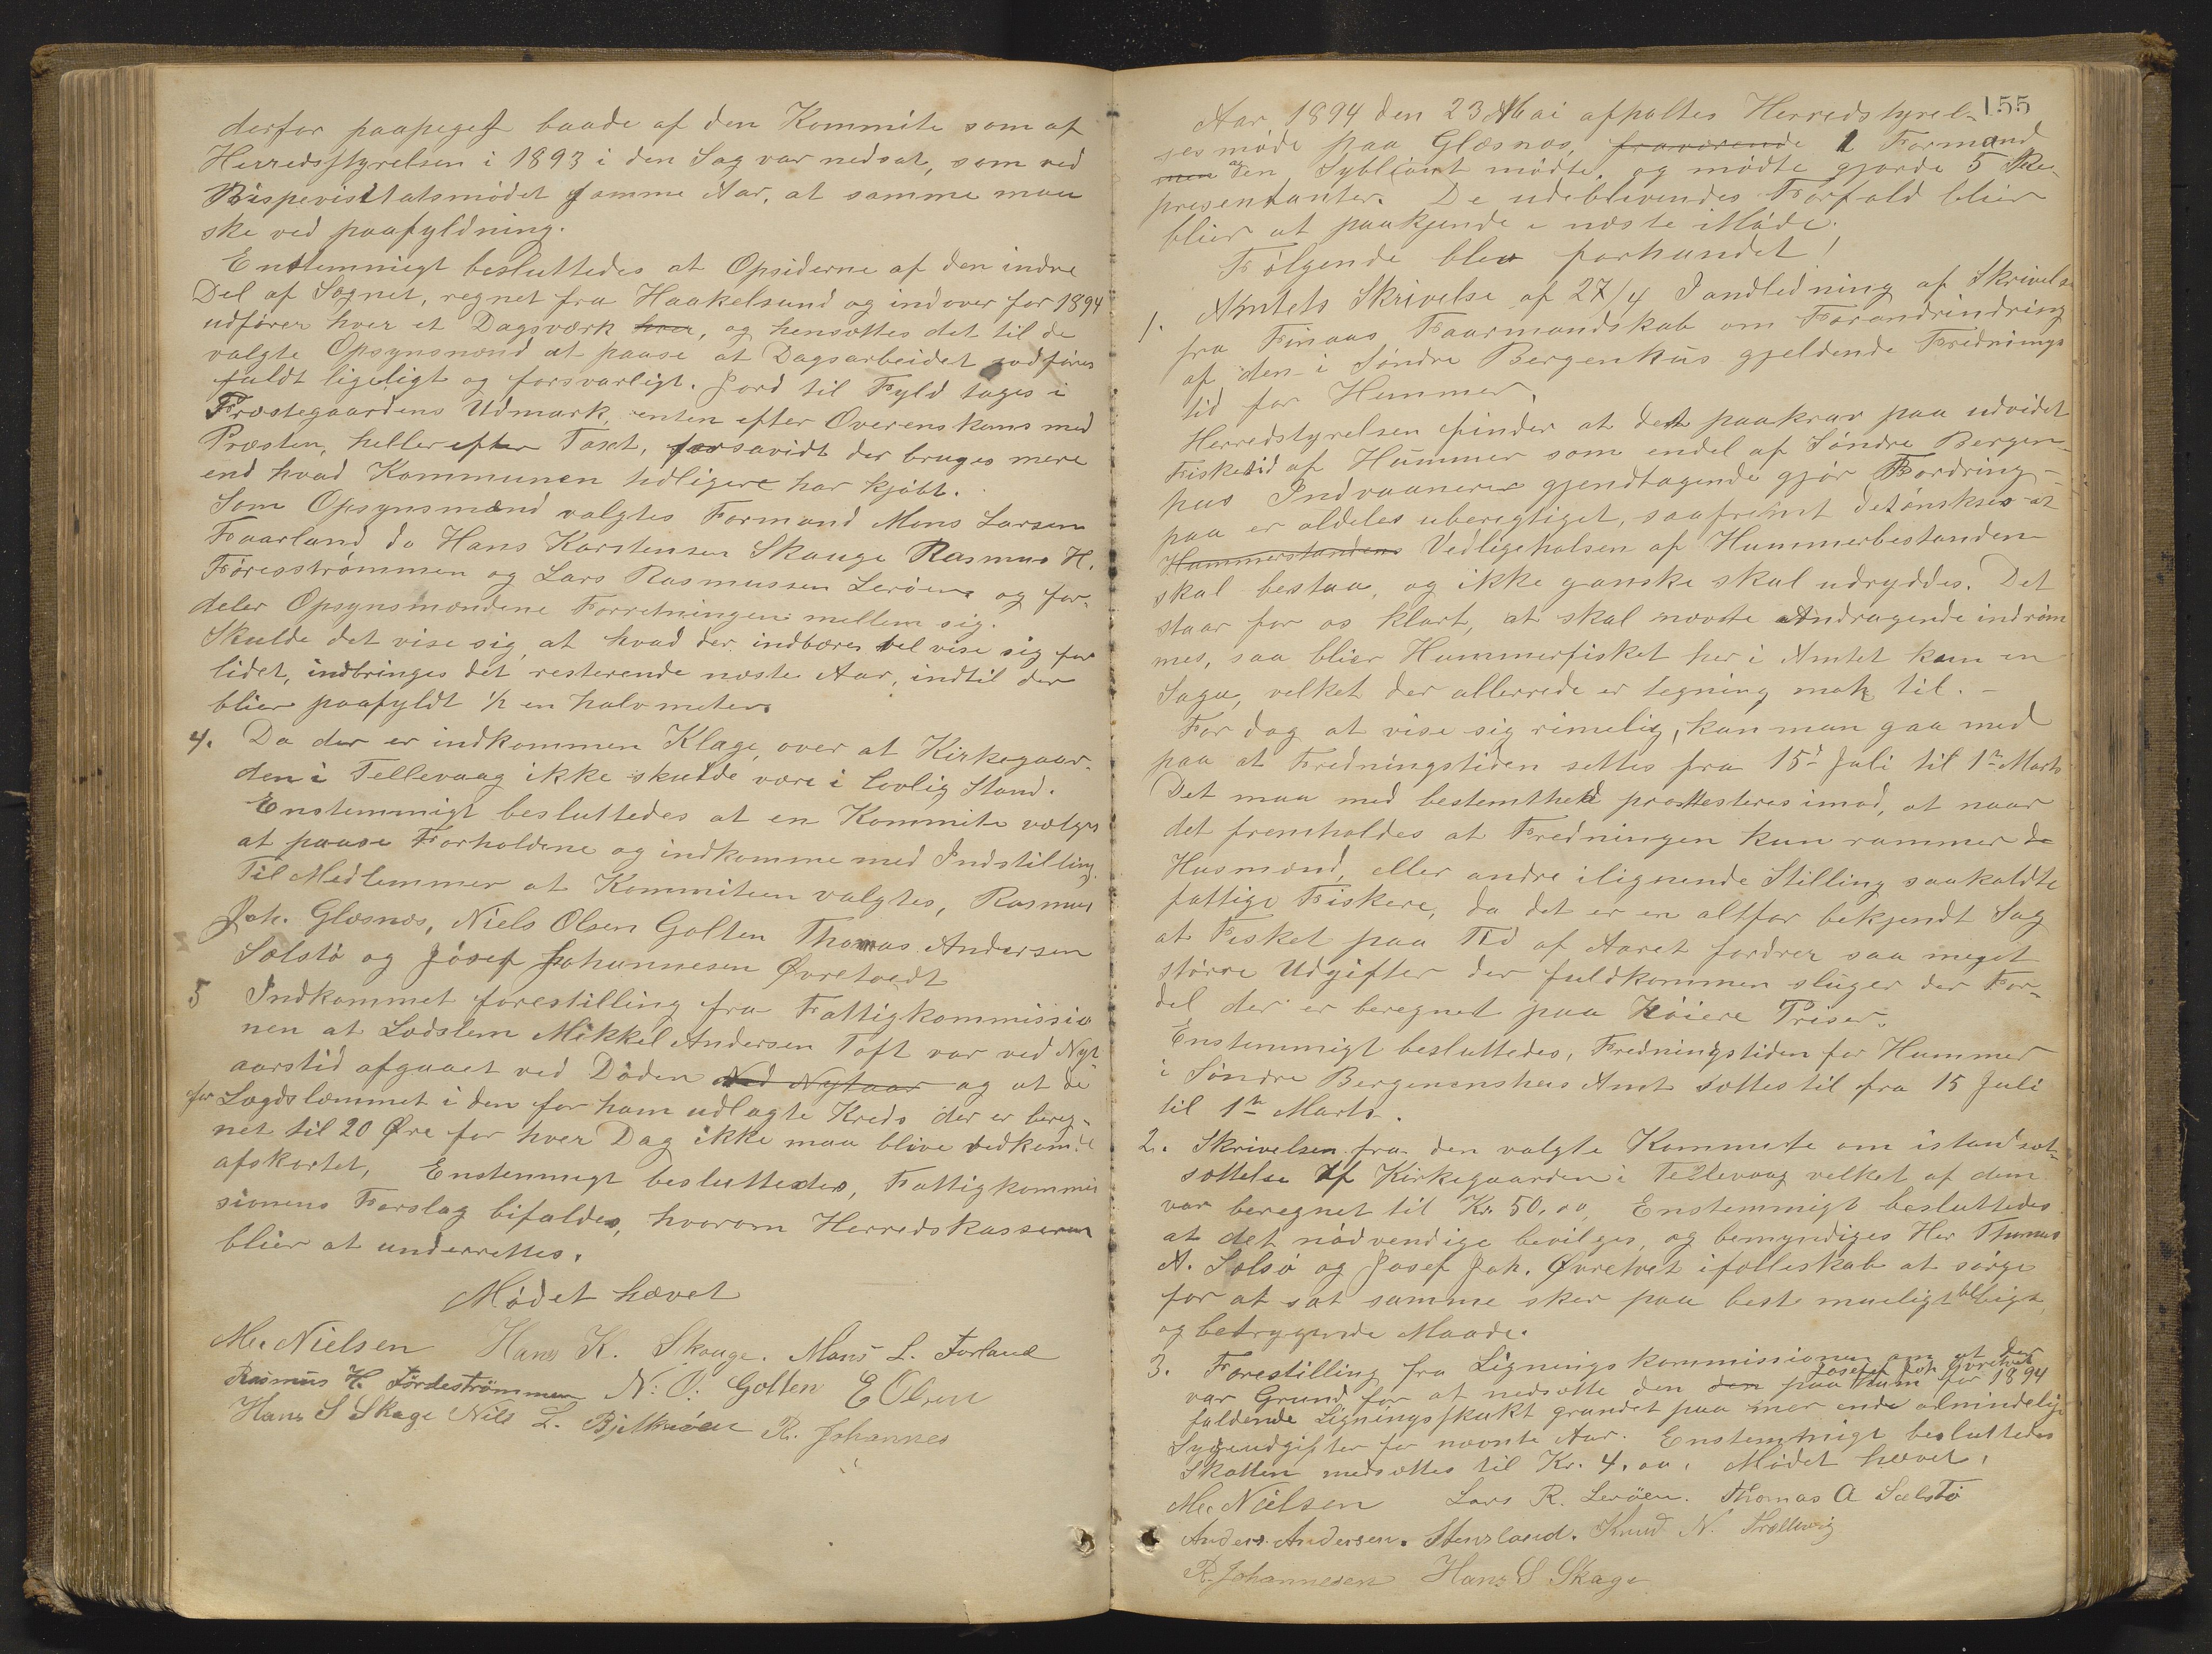 derfor paapeget baade af den Kommite som af
Herredsstyrelsen i 1893 i den Sag var nedsat, som ved
Bispevisitatsmödet samme Aar, at samme maa
ske ved paafyldning.
Enstemmigt besluttedes at Opsiderne af den indre
Del af Sognet, regnet fra Haakelsund og indover for 1894
udfører hver et Dagsværk hver, og hensættes det til de
valgte Opsynsmænd at paase at Dagsarbeidet udføres
fuldt ligeligt og forsvarligt. Jord til Fyld tages i
Præstegaardens Udmark, enten efter Overenskoms med
Præsten, heller efter Taxt, forsavidt der bruges mere
end hvad Kommunen tidligere har kjøbt.
Som Opsynsmænd valgtes Formand Mons Larsen
Faarland do Hans Karstensen Skauge Rasmus H.
Föresströmmen og Lars Rasmussen Leröen og for-
deler Opsynsmændene Forretningen mellem sig.
Skulde det vise sig, at hvad der indbæres vel vise sig for
lidet, indbringes det resterende næste Aar, indtil der
blier paafyldt ½ en halv meter.
4. Da der er indkommen Klage over at Kirkegaar-
den i Tellevaag ikke skulde være i lovlig Stand.
Enstemmigt besluttedes at en Kommite vælges
at paase Forholdene og indkomme med Indstilling.
Til Medlemmer at Kommiteen valgtes, Rasmus
Joh. Glæsnæs, Niels Olsen Golten Thomas Andersen
Sælstö og Jósef Johannesen Øvretvedt
5 Indkommet forestilling fra Fattigkommissio
nen at Lodslem Mikkel Andersen Toft var ved Nyt-
aarstid afgaaet ved Döden Ved Nytaar og at de
for Lægdslæmmet i den for ham udlagte Kreds der er bereg-
net til 20 Øre for hver Dag ikke maa blive vedkom.
afskortet, Enstemmigt besluttedes, Fattigkommis
sionens Forslag bifaldes, hvorom Herredskasseren
blier at underrettes.
Mödet hævet
M. Nielsen Hans K. Skauge. Mons L. Forland
Rasmus H. Fördeströmmen N: O: Golten E Olsen
Hans S Skage Nils L. Bjelkeröen R. Johannes
155
Aar 1894 den 23 Mai afholtes Herredstyrel-
ses möde paa Glæsnæs, fraværende 1 Formand
men og den Sybliant mödte, og mödte gjorde 5 Re-
presentanter. De udeblivendes Forfald blier
blier at paakjende i næste Möde.
Fölgende blev forhandlet!
1. Amtets Skrivelse af 27/4 I andledning af Skrivelse
fra Finaas Faarmandskab om Forandrindring
af den i Söndre Bergenhus gjeldende Frednings
tid for Hummer.
Herredstyrelsen finder at det paakrav paa udvidet
Fisketid af Hummer som endel af Söndre Bergen-
hus Indvaanere gjendtagende gjör Fordring-
paa er aldeles uberegtiget, saafremt det önskes at
Hummerstandens Vedligeholsen af Hummerbestanden
skal bestaa, og ikke ganske skal udryddes. Det
staar for os klart, at skal nævnte Andragende indröm
mes, saa blier Hummerfisket her i Amtet kun en
Saga, velket der allerrede er tegning nok til. -
For dog at vise sig rimelig, kan man gaa med
paa at Fredningstiden settes fra 15de Juli til 1ste Marts
Det maa med bestemthed prottesteres imod, at naar
det fremholdes at Fredningen kun rammer de
Husmænd, eller andre ilignende Stilling saakaldte
fattige Fiskere, da det er en altfor bekjendt Sag
at Fisket paa Tid af Aaret fordrer saa meget
större Udgifter der fuldkommen sluger der For-
del, der er beregnet paa Höiere Priser.
Enstemmigt besluttedes, Fredningstiden for Hummer
i Söndre Bergenenshus Amt sættes til fra 15 Juli
til 1ste Marts.
2. Skrivelsen fra den valgte Kommite om istandsæt-
sættelse af Kirkegaarden i Tellevaag velket af dem
var beregnet til Kr. 50,00, Enstemmigt besluttedes
at det nödvendige bevilges, og bemyndiges Her Thomas
A. Solsö og Josef Joh. Øvretvet ifælleskab at sörge
for at sat samme sker paa best mueligt billigt,
og betryggende Maade.
3. Forestilling fra Ligningskommissionen om at der
var Grund for at nedsætte den den paa Josef Joh Øvretvet ham for 1894
faldende Ligningsskakt grundet paa mer ende almindelige
Sygeudgifter for nævnte Aar. Enstemmigt besluttedes
Skatten nedsættes til Kr. 4.00. Mödet hævet.
M. Nielsen Lars R. Leröen. Thomas A Sælstö
Anders Andersen. Stensland. Knud N. Trællevig
R. Johannesen Hans S Skage